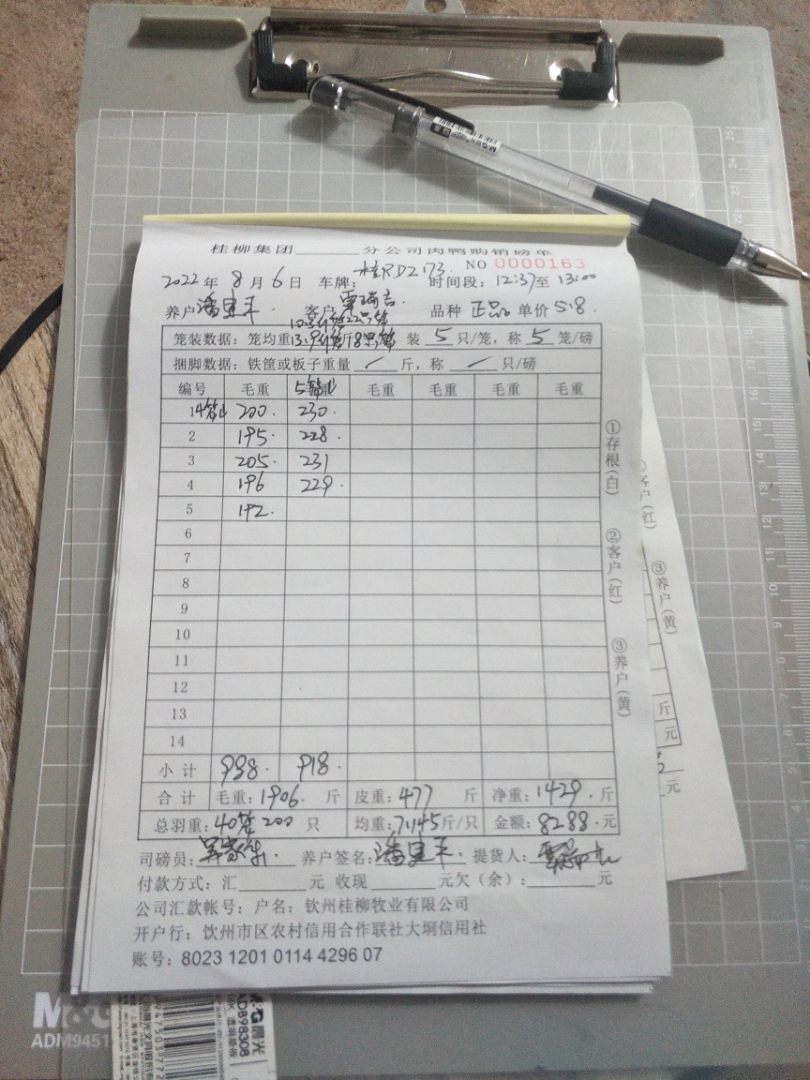 桂柳集团______分公司肉鸭购销磅单
NO 0000163
2022年8月6日 车牌：桂RD2173 时间段：12:37至13:00
养户 客户 品种 正品 单价 5.8
笼装数据：笼均重 装5只/笼，称5笼/磅
捆脚数据：铁筐或板子重量 / 斤，称 / 只/磅
编号 毛重 5笼 毛重 毛重 毛重 毛重
1 4笼 200. 230.
2 195. 228.
3 205. 231
4 196 229.
5 192.
6
7
8
9
10
11
12
13
14
小计 988. 918.
合计 毛重：1906.斤 皮重：477 斤 净重：1429.斤
总羽重：40笼200只 均重：7.145斤/只 金额：8288.元
司磅员： 养户签名： 提货人：
付款方式：汇______元 收现______元欠（余）：______元
公司汇款帐号：户名：钦州桂柳牧业有限公司
开户行：饮州市区农村信用合作联社大垌信用社
账号：8023 1201 0114 4296 07
①存根(白)
②客户(红)
③养户(黄)
客户(红)
③养户(黄)
斤
元
元
M&G
ADM9451
M&G晨光
ADB98308